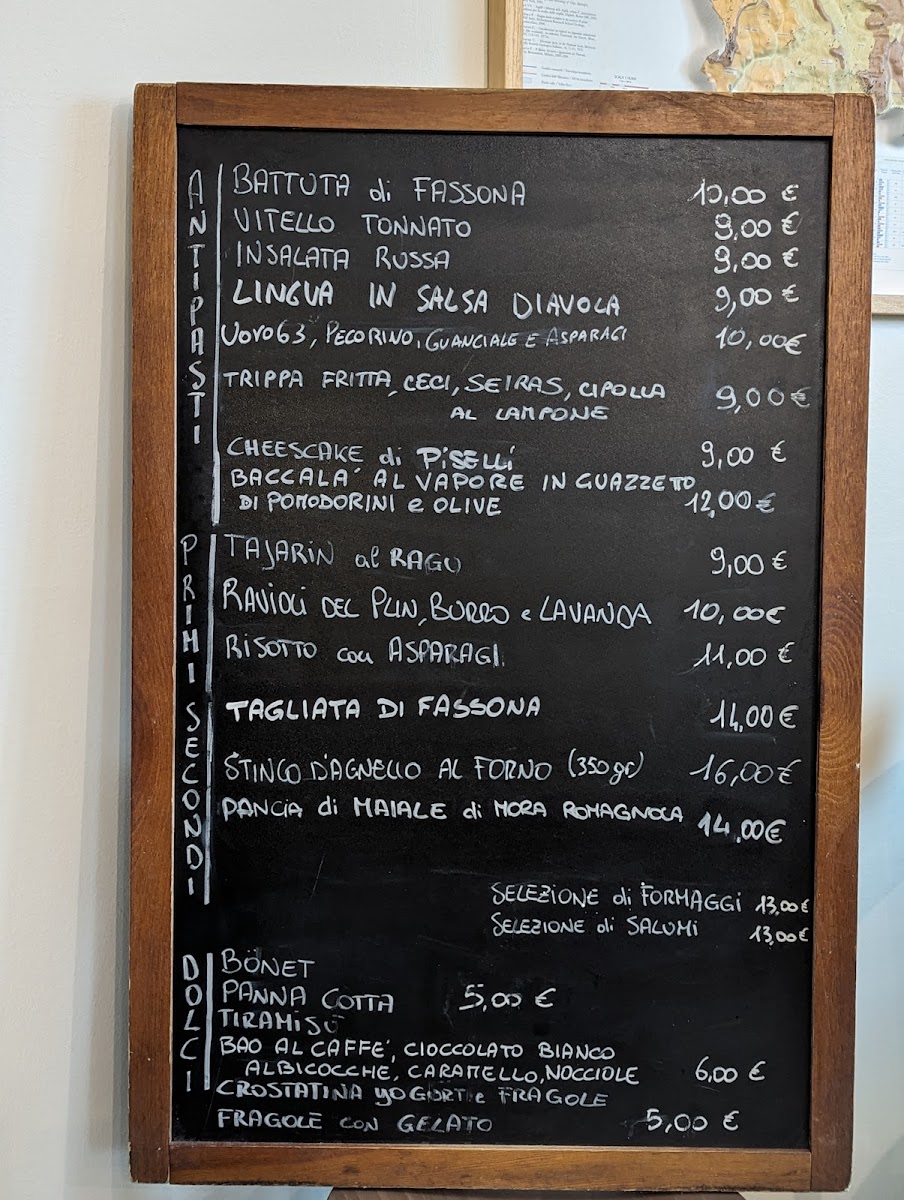 ANTIPASTI
BATTUTA di FASSONA 10,00 €
VITELLO TONNATO 9,00 €
INSALATA RUSSA 9,00 €
LINGUA IN SALSA DIAVOLA 9,00 €
UOVO63, PECORINO, GUANCIALE E ASPARAGI 10,00€
TRIPPA FRITTA, CECI, SEIRAS, CIPOLLA
AL LAMPONE 9,00€
CHEESCAKE di PISELLI 9,00 €
BACCALA' AL VAPORE IN GUAZZETO
DI POMODORINI e OLIVE 12,00€
PRIMI
TAJARIN al RAGU 9,00 €
RAVIOLI DEL PLIN, BURRO e LAVANDA 10,00€
RISOTTO con ASPARAGI 11,00 €
SECONDI
TAGLIATA DI FASSONA 14,00€
STINCO D'AGNELLO AL FORNO (350gr) 16,00€
PANCIA di MAIALE di MORA ROMAGNOLA 14,00€
SELEZIONE di FORMAGGI 13,00€
SELEZIONE di SALUMI 13,00€
DOLCI
BONET
PANNA COTTA 5,00 €
TIRAMISÙ
BAO AL CAFFE', CIOCCOLATO BIANCO
ALBICOCCHE, CARAMELLO, NOCCIOLE 6,00 €
CROSTATINA YOGURT e FRAGOLE
FRAGOLE CON GELATO 5,00 €